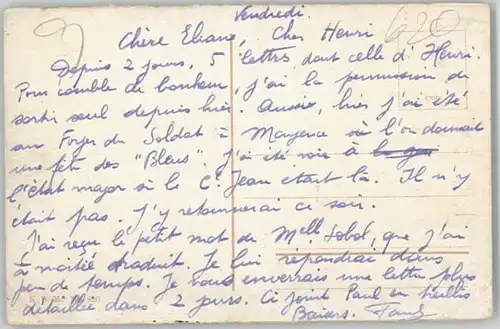 Vendredi.
620
Chère Eliane, Cher Henri
Depuis 2 jours, 5 lettres, dont celle d'Henri.
Pour comble de bonheur, j'ai la permission de
sortir seul depuis hier. Aussi, hier j'ai été
au Foyer du Soldat à Mayence où l'on donnait
une fête des "Bleus". J'ai été voir à
l'état major si le C. Jean etait là. Il n'y
était pas. J'y retournerai ce soir.
J'ai reçu le petit mot de Melle, que j'ai
à moitié traduit. Je lui répondrai dans
peu de temps. Je vous enverrais une lettre plus
détaillée dans 2 jours. Ci joint Paul en
Baisers. Paul